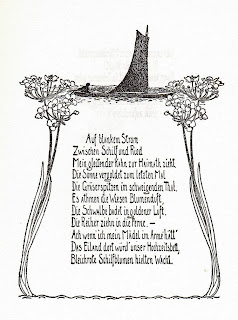 Auf blankem Strom
Zwischen Schilf und Ried
Mein gleitender Kahn zur Heimath zieht.
Die Sonne vergoldet zum letzten Mal
Die Gräserspitzen im schweigenden Thal.
Es athmen die Wiesen Blumenduft,
Die Schwalbe badet in goldener Luft,
Die Reiher ziehn in die Ferne. —
Ach wenn ich mein Mädel im Arme hätt'
Das Eiland dort würd' unser Hochzeitsbett,
Bleichrote Schilfblumen hielten Wacht.